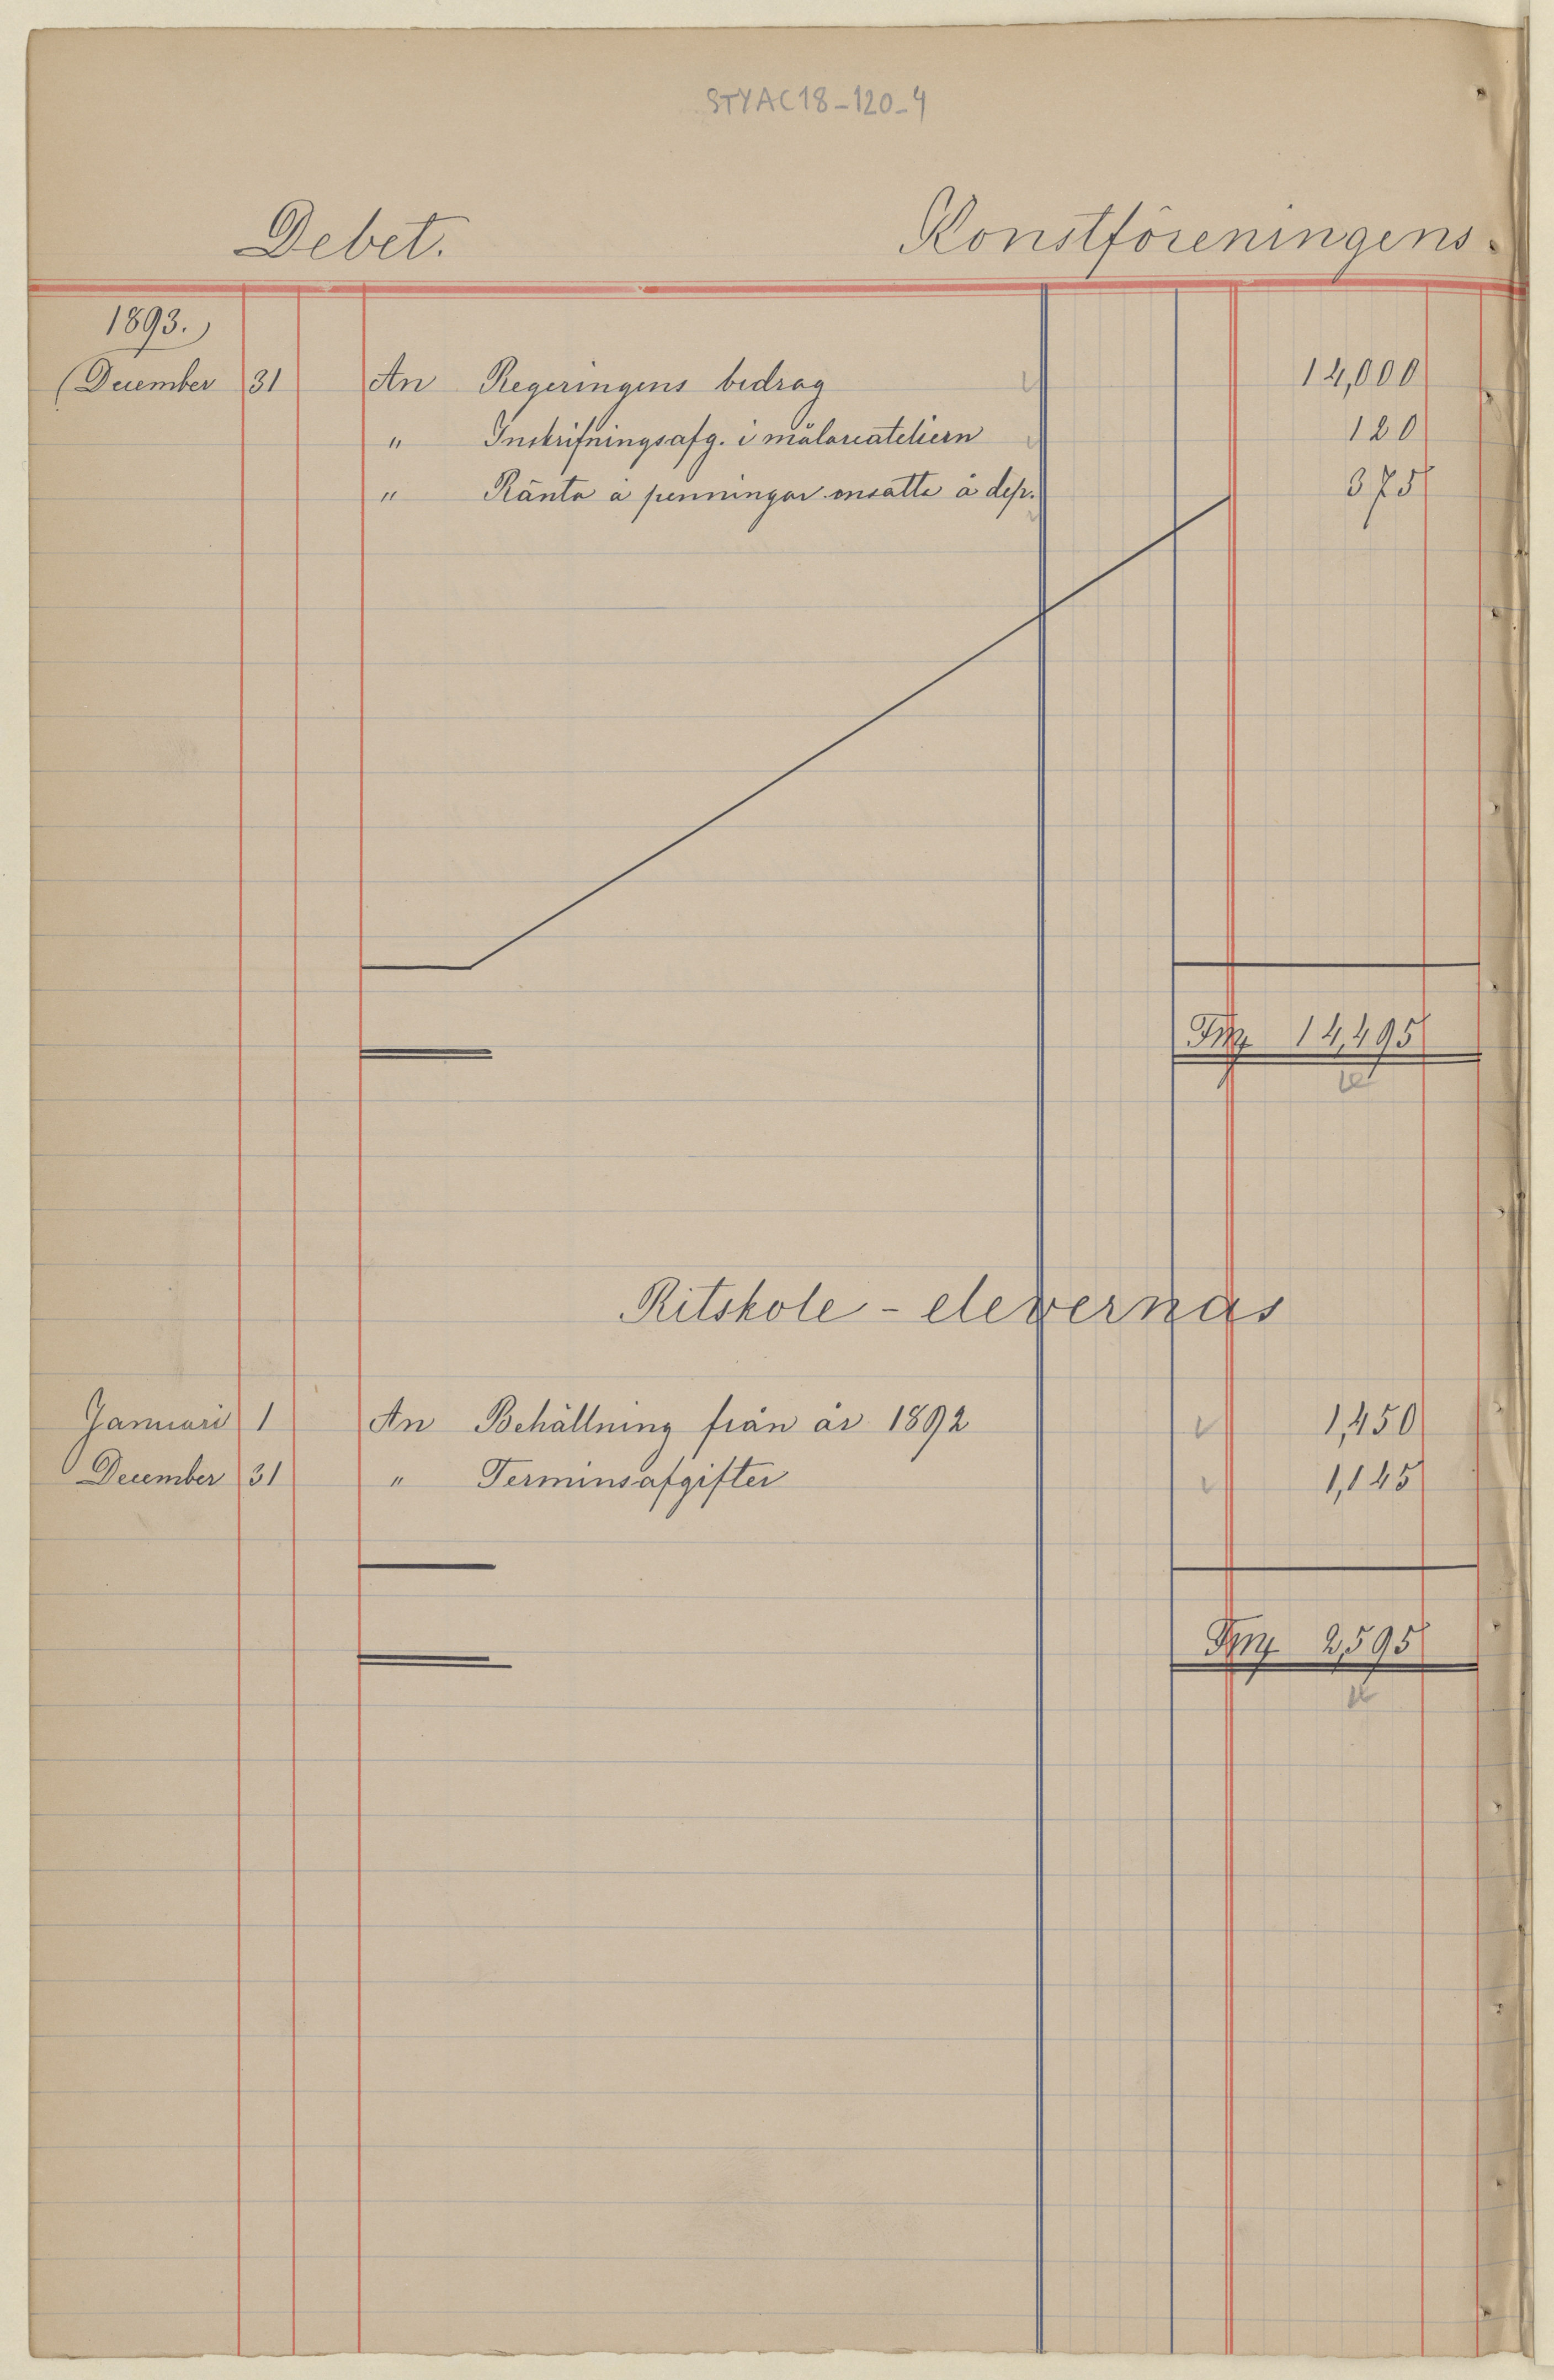 STYAC18-120-4
Debet. Konstföreningens
1893.
December 31 An Regeringens bedrag 14,000
" Inskrifningsafg. i målareateliern 120
" Ränta å penningar insatte å dep. 375
Fmk 14,495
Ritskole - elevernas
Januari 1 An Behållning från år 1892 1,450
December 31 " Terminsafgifter 1,145
Fmk 2,595